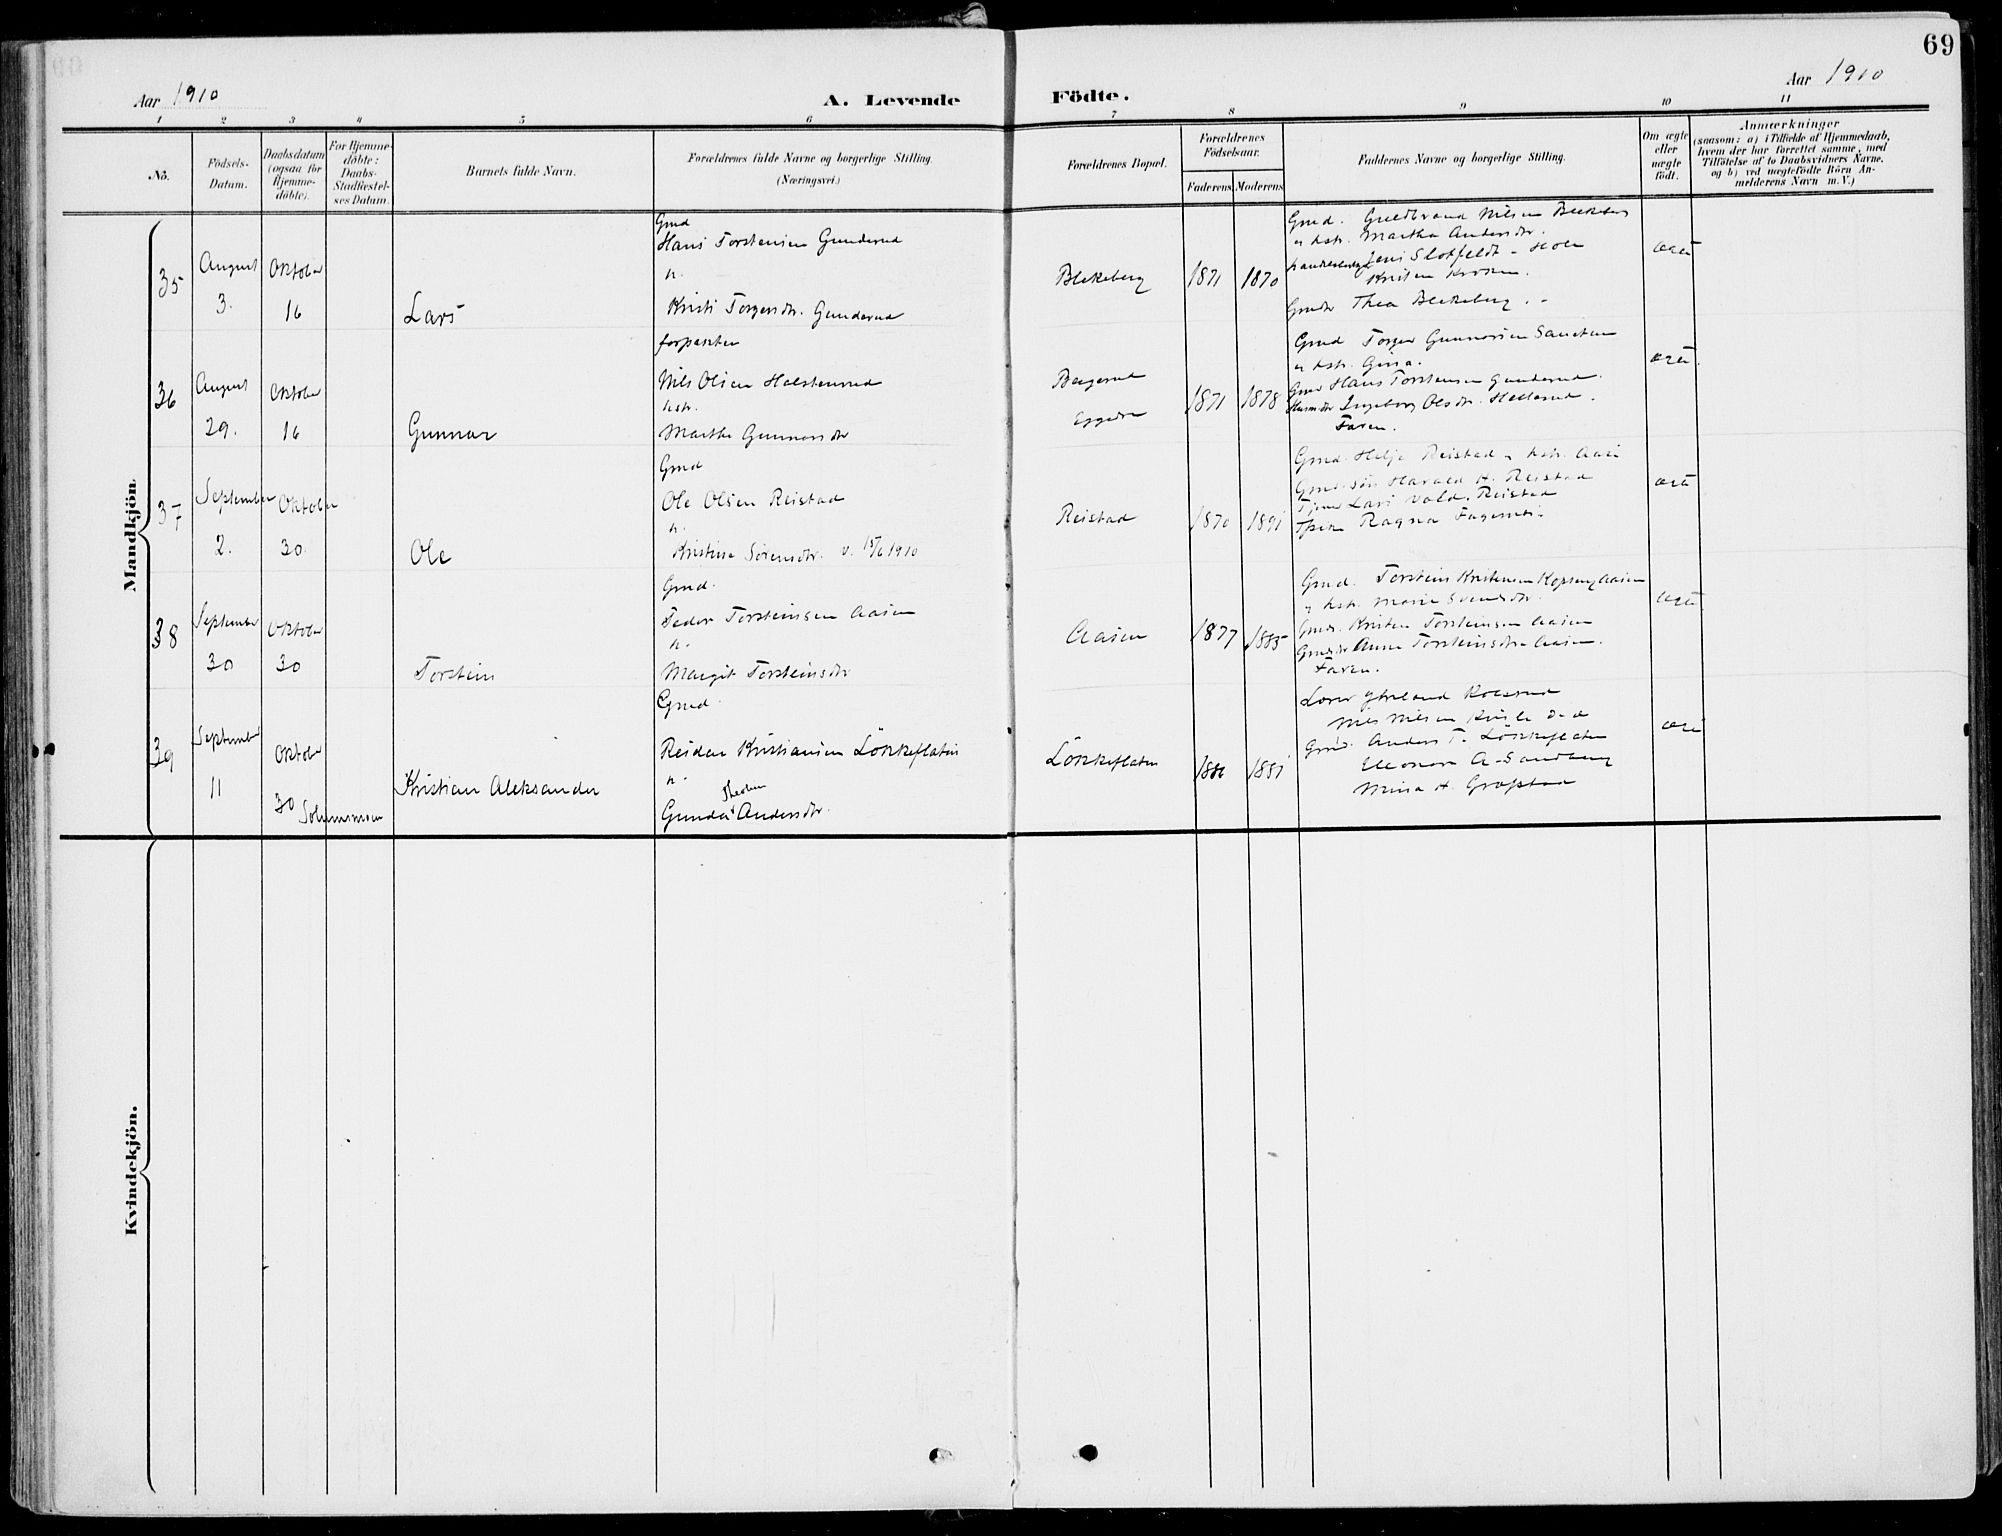 69
Aar 1910
A. Levende Födte.
Aar 1910
1 2 3 4 5 6 7 8 9 10 11
No.
Födsels-Datum.
Daabsdatum (ogsaa for Hjemme-döbte).
For Hjemme-döbte: Daabs-Stadfæstel-ses Datum.
Barnets fulde Navn.
Forældrenes fulde Navne og borgerlige Stilling.
(Næringsvei.)
Forældrenes Bopæl.
Forældrenes Födselsaar.
Faderens Moderens
Faddernes Navne og borgerlige Stilling.
Om ægte eller uægte födt.
Anmærkninger
(saasom: a) i Tilfælde af Hjemmedaab,
hvem der har forrettet samme, med
Tilföielse af to Daabsvidners Navne.
og b) ved uægtefödte Börn An-
melderens Navn m. V.)
Mandkjön.
35
August 3.
Oktober 16
Lars
Gmd
Hans Torstensen Gunderud
h.
Kristi Torgersdtr. Gunderud
Blekeberg
1871 1870
Gmd. Guldbrand Nilsen Blekeberg
h hstr. Martha Andersdtr.
Jens Slotfeldt - Hole
Kristen Kroken.
Thea Blekeberg.
ægte
36
August 29.
Oktober 16
Gunnar
forpakter
Nils Olsen Halstensrud
hstr.
Marthe Gunnarsdtr
Bergerud
Eggedal
1871 1878
Gmd Torger Gunnarsen
h hstr. Gina.
Gmd Hans Torstensen Gunderud.
Ingeborg Olsdtr.
Faren.
ægte
37
September 2.
Oktober 30.
Ole
Gmd
Ole Olsen Reistad
h.
Kristine Sörensdtr. v. 15/6 1910
Reistad
1870 1891
Gmd. Helge Reistad h hstr.
Gmdsön Harald H. Reistad
Lars Reistad
Ragna
ægte
38
September 30
Oktober 30
Torstein
Gmd.
Peder Torsteinsen Aasen
h.
Margit Torsteinsdtr
Aasen
1877 1885
Gmd. Torstein Kristensen Aasen
h hstr. Marie Svendsdtr.
Kristen Torsteinsen Aasen
Anne Torsteinsdtr Aasen.
Faren.
ægte
39
September 11
Oktober 30
Kristian Aleksander
Gmd.
Reidar Kristiansen Lökkeflaten
h.
Gunda Andersdtr.
Lökkeflaten
1881
Nils Nilsen
Anders T. Lökkeflaten
Eleonora A.
Mina H. Grafstad
ægte
Kvindekjön.